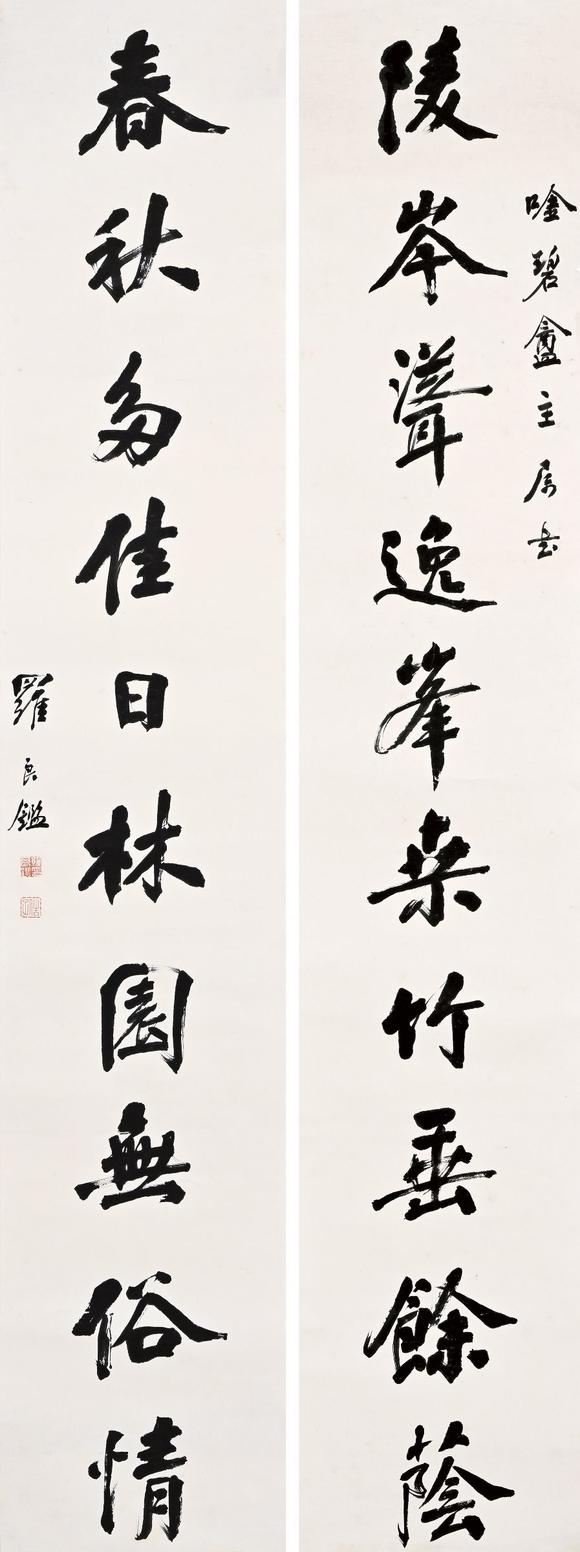 唫碧盦主属書
陵岑聳逸峯桒竹垂餘蔭
春秋多佳日林園無俗情
羅良鑑